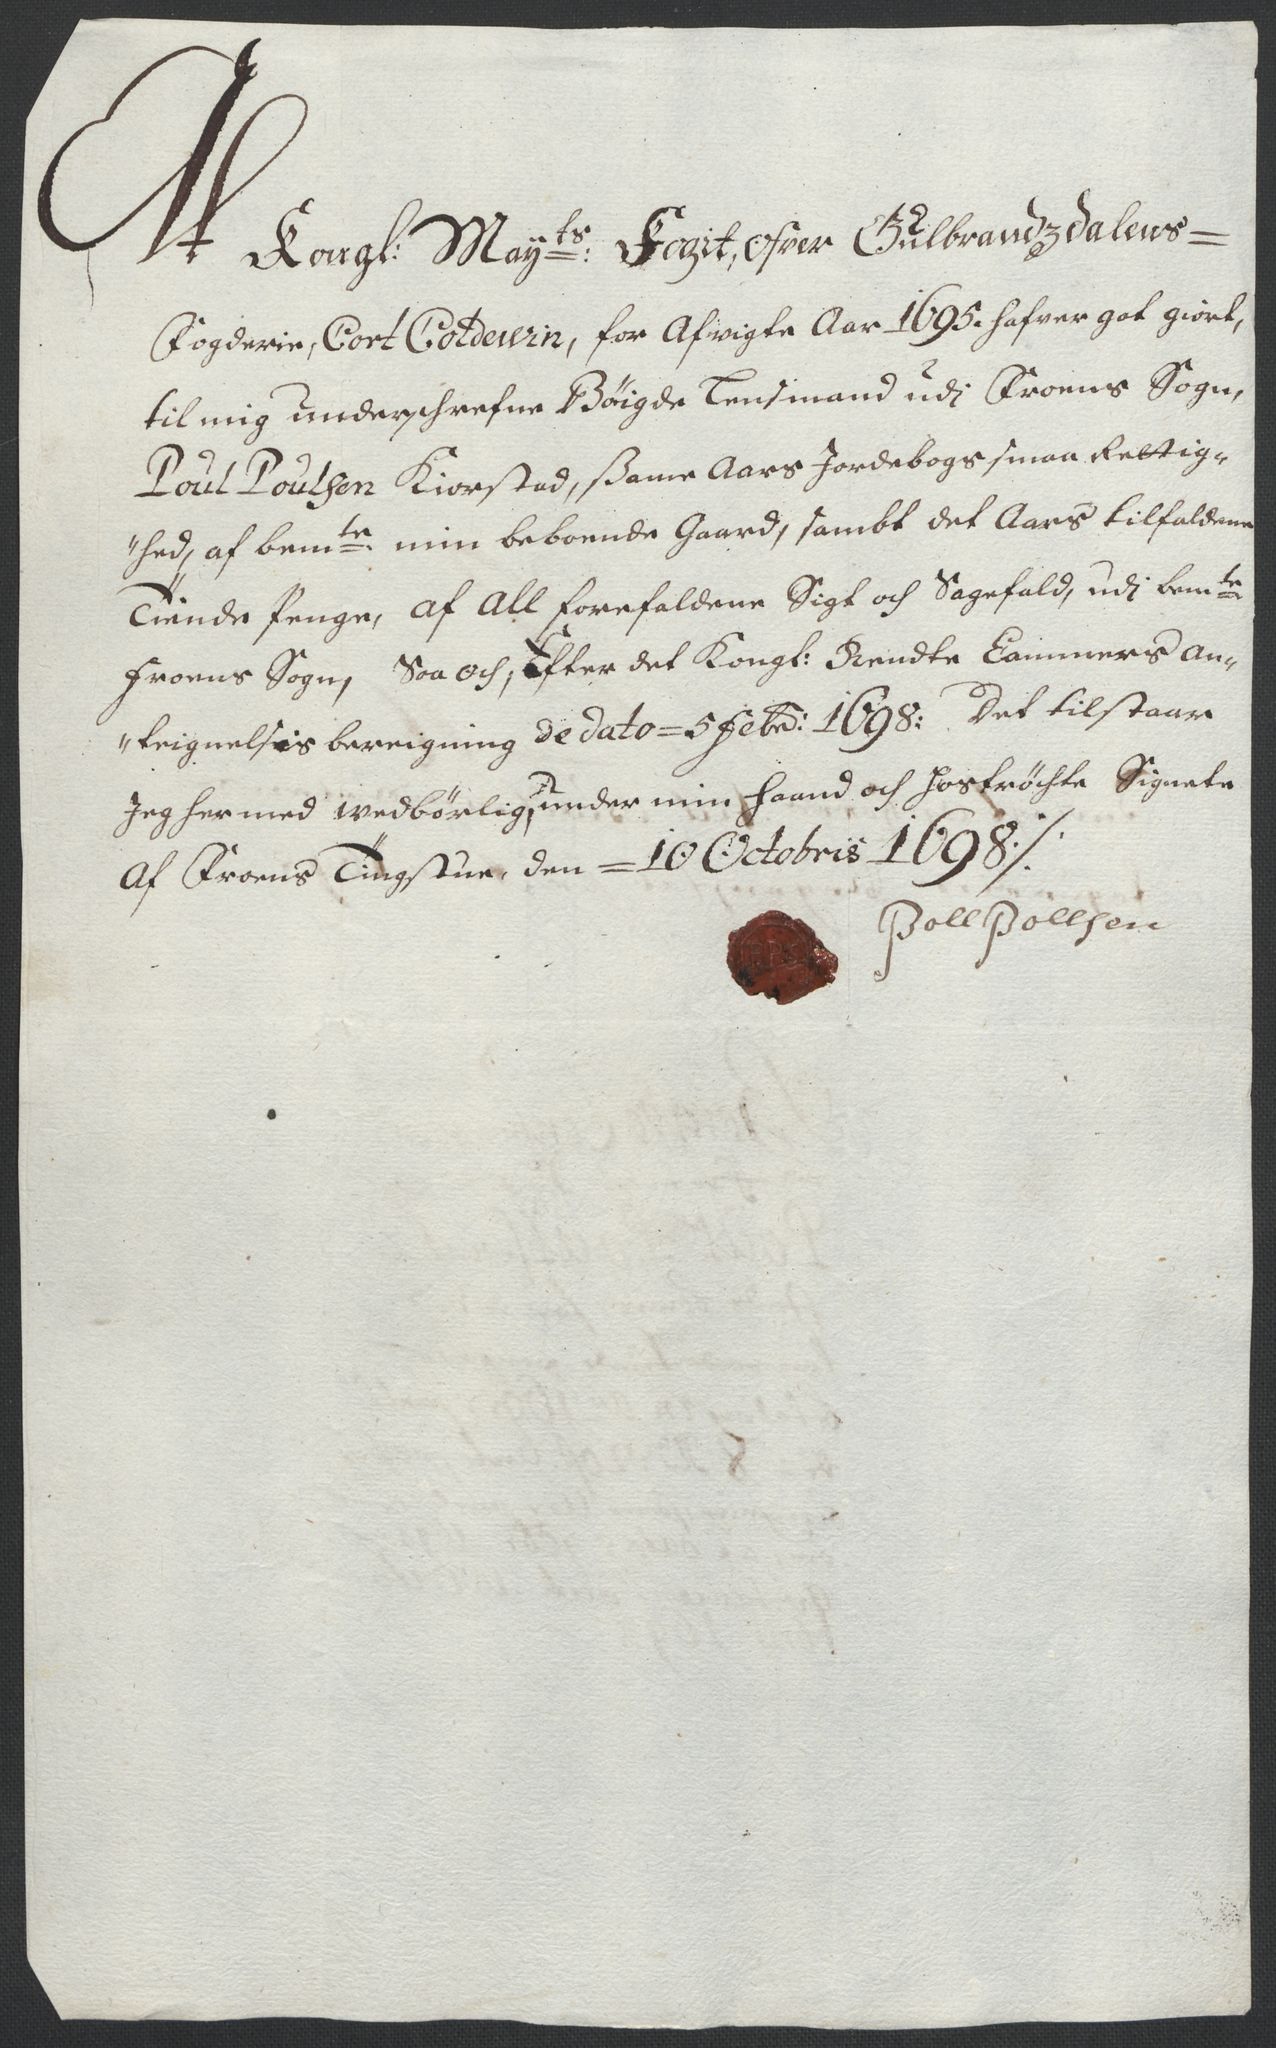 At Kongl: May:ts: Fogit, ofver Gulbrandzdalens=
Fogderie, Cort Coldewin, for Afvigte Aar 1695. hafver got giort,
til mig underschrefne Böigde Lensmand udj Froens Sogn,
Poul Poulsen Kiorstad, ßame Aars Jordebogs smaa Rettig-
"hed, af bemte: min beboende Gaard, sambt det Aars tilfaldene
Tiende Penge, af All forefaldene Sigt och Sagefald, udj bemte
Froens Sogn, Saa och, Efter det Kongl: Rendte Cammers An-
"teignelsis bereigning de dato = 5 Febr: 1698: Det tilstaar
Jeg hermed wedbörlig, under min Haand och hoströchte Signete
Af Froens Tingstue, den = 10 Octobris 1698 ./.
Poll Pollsen